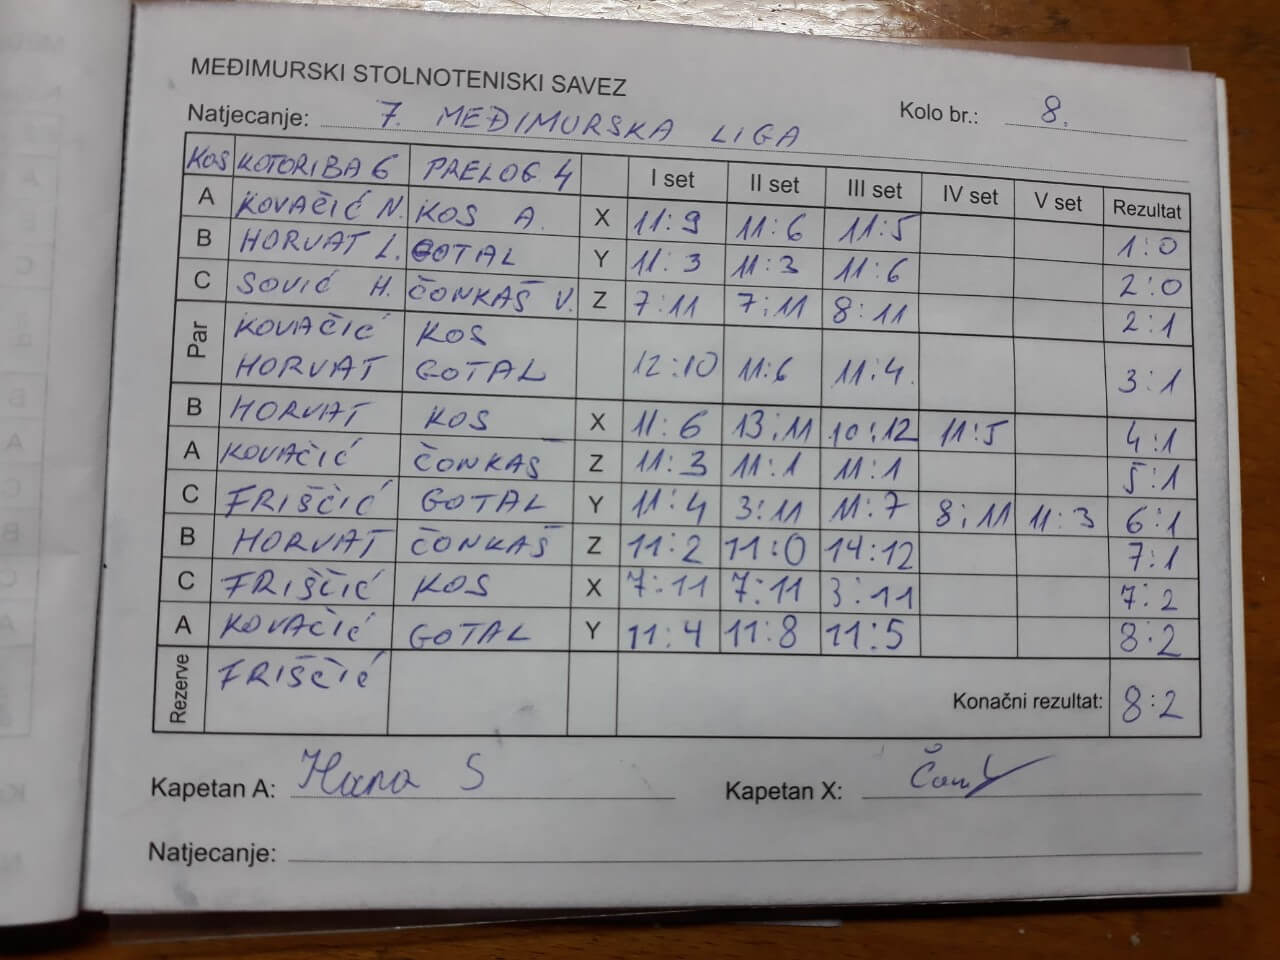 MEĐIMURSKI STOLNOTENISKI SAVEZ
Natjecanje: 7. MEĐIMURSKA LIGA Kolo br.: 8.
KOS KOTORIBA 6 PRELOG 4 I set II set III set IV set V set Rezultat
A KOVAČIĆ N. KOS A. X 11:9 11:6 11:5 1:0
B HORVAT L. GOTAL Y 11:3 11:3 11:6 2:0
C SOVIĆ H. ČONKAŠ V. Z 7:11 7:11 8:11 2:1
Par KOVAČIĆ KOS
HORVAT GOTAL 12:10 11:6 11:4. 3:1
B HORVAT KOS X 11:6 13:11 10:12 11:5 4:1
A KOVAČIĆ ČONKAŠ Z 11:3 11:1 11:1 5:1
C FRIŠČIĆ GOTAL Y 11:4 3:11 11:7 8:11 11:3 6:1
B HORVAT ČONKAŠ Z 11:2 11:0 14:12 7:1
C FRIŠČIĆ KOS X 7:11 7:11 3:11 7:2
A KOVAČIĆ GOTAL Y 11:4 11:8 11:5 8:2
Rezerve FRIŠČIĆ Konačni rezultat: 8:2
Kapetan A: Hana S Kapetan X:
Natjecanje: